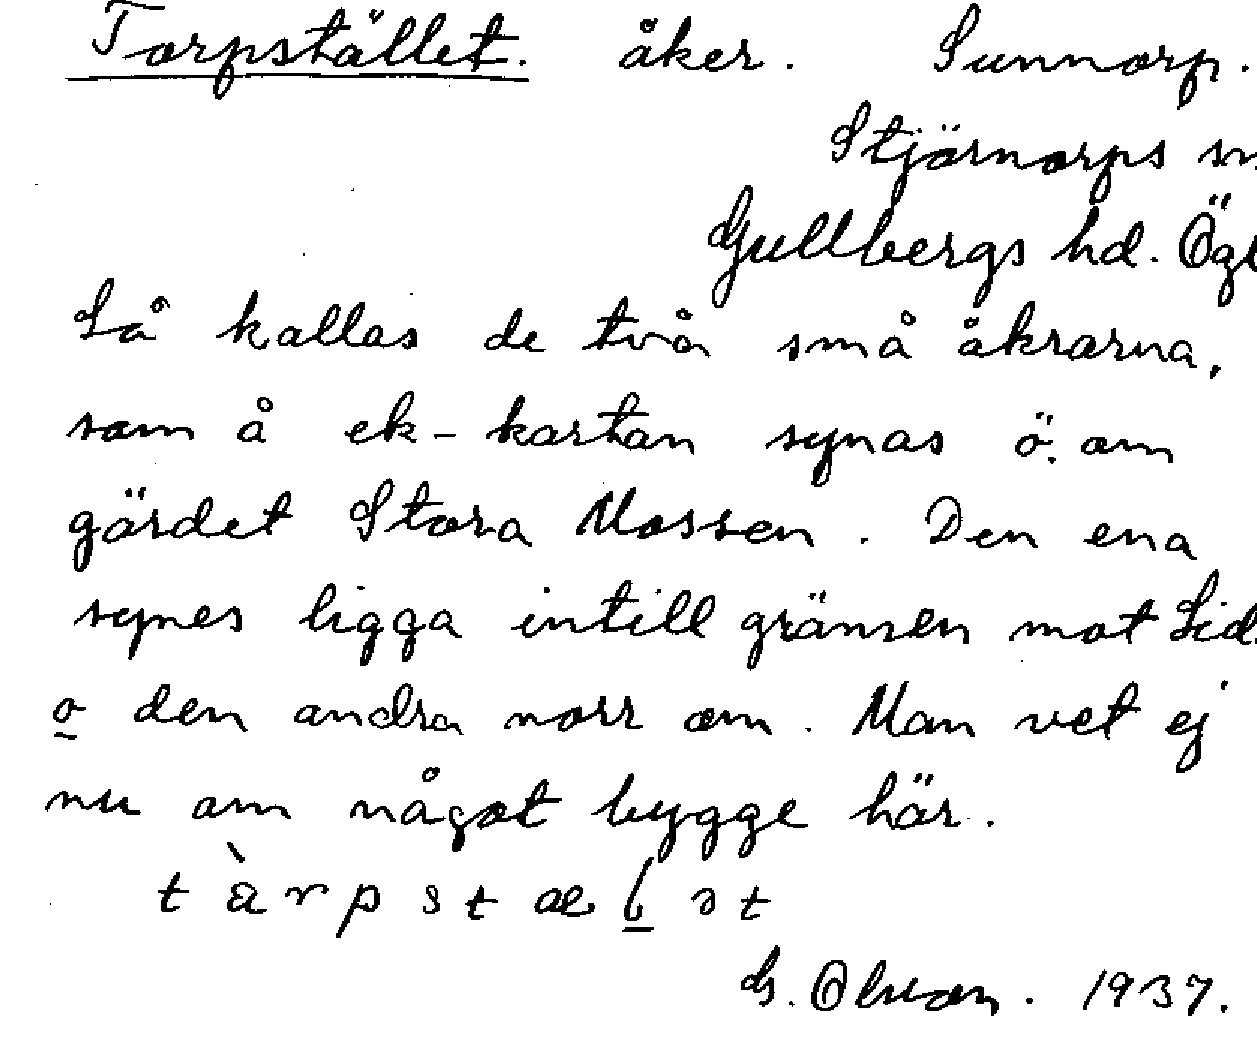 Torpstället. åker. Sunnorp.
Stjärnorps sn
Gullbergs hd. Ögl
Så kallas de två små åkrarna,
som å ek-kartan synas ö. om
gärdet Stora Mossen. Den ena
synes ligga intill gränsen mot Lid.
o den andra norr om. Man vet ej
nu om något bygge här.
G. 1937.